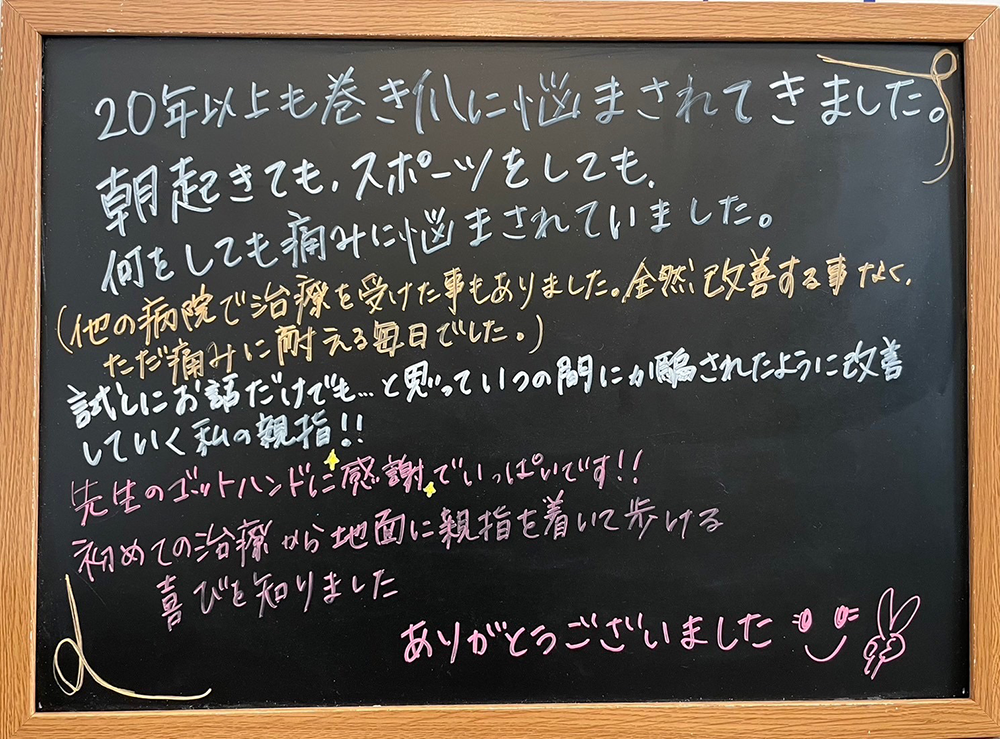 20年以上も巻き爪に悩まされてきました。
朝起きても、スポーツをしても、
何をしても痛みに悩まされていました。
(他の病院で治療を受けた事もありました。全然改善する事なく、
ただ痛みに耐える毎日でした。)
試しにお話だけでも…と思っていつの間にか騙されたように改善
していく私の親指!!
先生のゴットハンドに感謝でいっぱいです!!
初めての治療から地面に親指を着いて歩ける
喜びを知りました
ありがとうございました